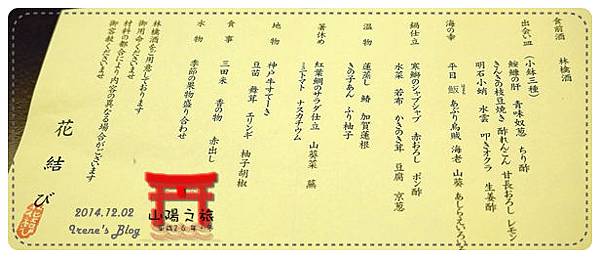 食前酒 林檎酒
出会い皿 (小鉢三種)
鮟鱇の肝 青味奴葱 ちり酢
きんきの枝豆焼き 酢れんこん 甘長おろし レモン
明石小蛸 水雲 叩きオクラ 生姜酢
海の幸
平目 鮃 あぶり烏賊 海老 山葵 あしらえいろいろ
鍋仕立 寒鰤のシャブシャブ 赤おろし ポン酢
水菜 若布 かきのき茸 豆腐 京葱
温物 蓮蒸し 鰆 加賀蓮根
きの子あん ふり柚子
箸休め 紅葉鯛のサラダ仕立 山葵菜 蕪
ミニトマト ナスタチウム
地物 神戸牛すてーき
豆苗 舞茸 エリンギ 柚子胡椒
食事 三田米 香の物 赤出し
水物 季節の果物盛り合わせ
林檎酒をご用意しております
御用命くださいませ
材料の都合により内容の異なる場合がございます
御容赦くださいませ
花結び
山陽之旅
2014.12.02
Irene's Blog